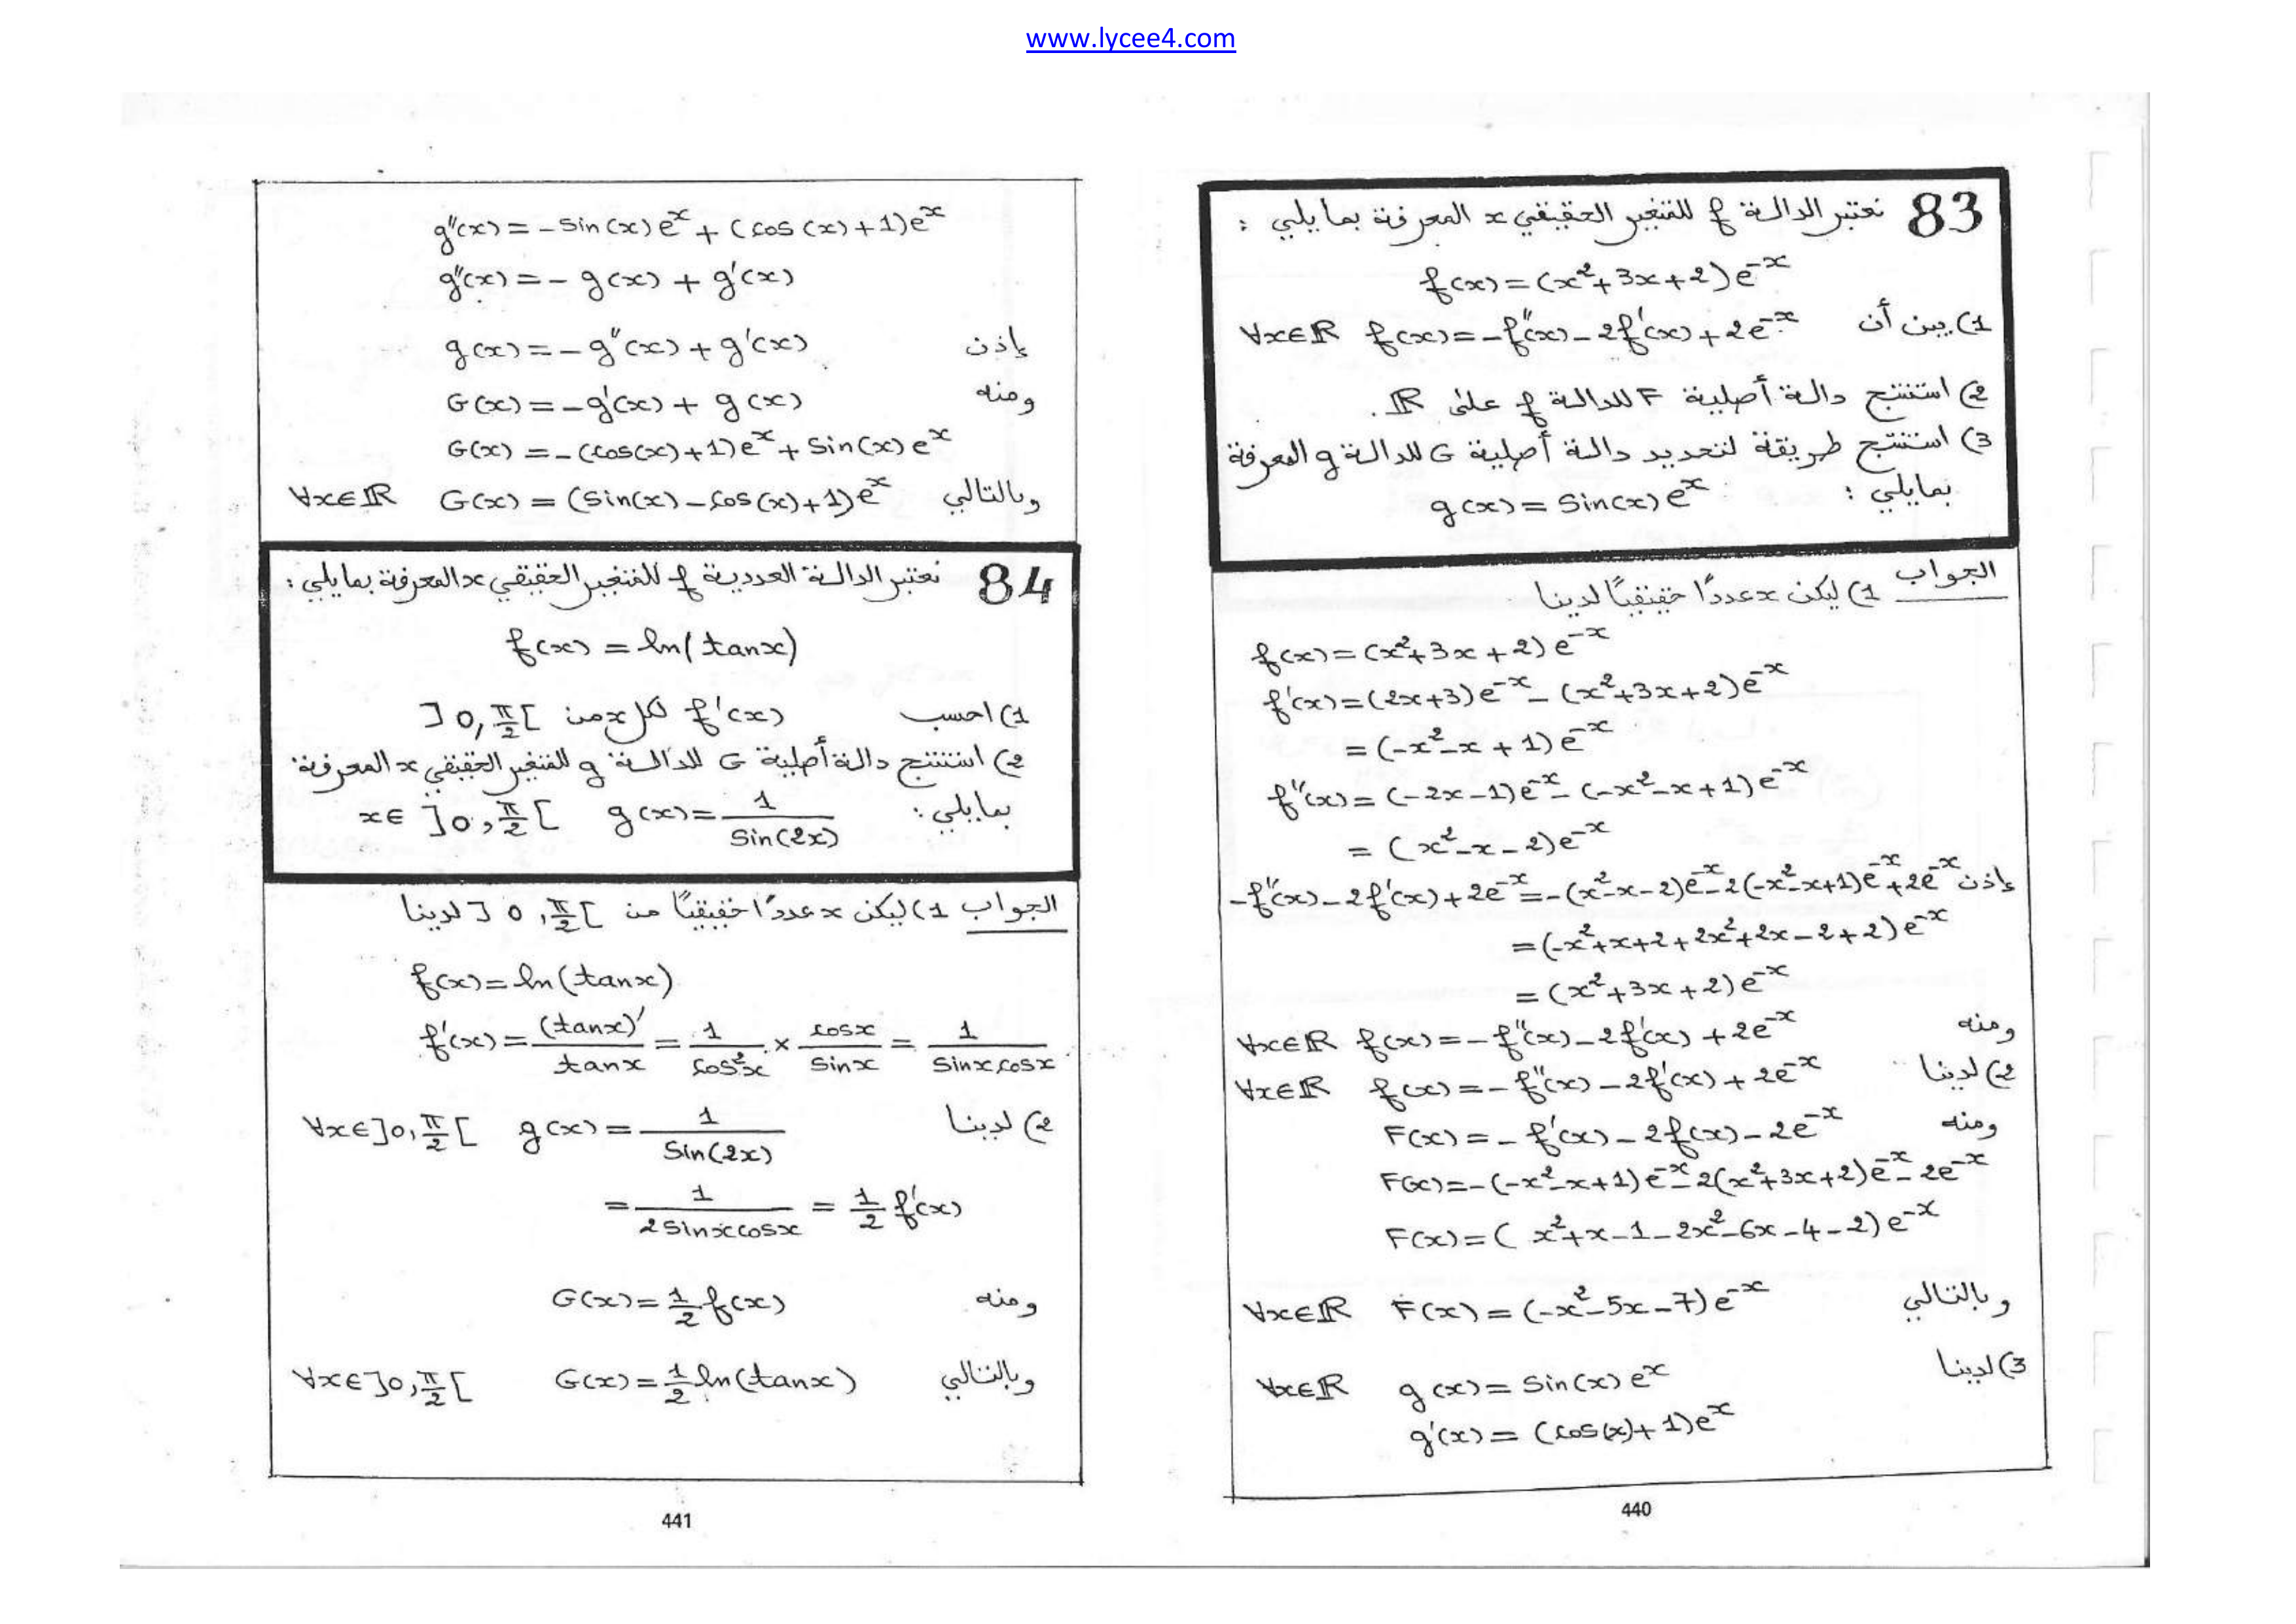 www.lycee4.com
83 نعتبر الدالة f للمتغير الحقيقي x المعرفة بما يلي :
f(x)=(x²+3x+2)e^{-x}
1) بين أن ∀x∈ℝ f(x)=-f''(x)-2f'(x)+2e^{-x}
2) استنتج دالة أصلية F للدالة f على ℝ.
3) استنتج طريقة لتحديد دالة أصلية G للدالة g المعرفة
بمايلي : g(x)=Sin(x)e^{x}
الجواب 1) ليكن x عددًا حقيقيًا لدينا
f(x)=(x²+3x+2)e^{-x}
f'(x)=(2x+3)e^{-x}-(x²+3x+2)e^{-x}
=(-x²-x+1)e^{-x}
f''(x)=(-2x-1)e^{-x}-(-x²-x+1)e^{-x}
=(x²-x-2)e^{-x}
إذن -f''(x)-2f'(x)+2e^{-x}=-(x²-x-2)e^{-x}-2(-x²-x+1)e^{-x}+2e^{-x}
=(-x²+x+2+2x²+2x-2+2)e^{-x}
=(x²+3x+2)e^{-x}
ومنه ∀x∈ℝ f(x)=-f''(x)-2f'(x)+2e^{-x}
2) لدينا ∀x∈ℝ f(x)=-f''(x)-2f'(x)+2e^{-x}
ومنه F(x)=-f'(x)-2f(x)-2e^{-x}
F(x)=-(-x²-x+1)e^{-x}-2(x²+3x+2)e^{-x}-2e^{-x}
F(x)=(x²+x-1-2x²-6x-4-2)e^{-x}
وبالتالي ∀x∈ℝ F(x)=(-x²-5x-7)e^{-x}
3) لدينا ∀x∈ℝ g(x)=Sin(x)e^{x}
g'(x)=(cos(x)+1)e^{x}
440
g''(x)=-sin(x)e^{x}+(cos(x)+1)e^{x}
g''(x)=-g(x)+g'(x)
إذن g(x)=-g''(x)+g'(x)
ومنه G(x)=-g'(x)+g(x)
G(x)=-(cos(x)+1)e^{x}+Sin(x)e^{x}
وبالتالي ∀x∈ℝ G(x)=(Sin(x)-cos(x)+1)e^{x}
84 نعتبر الدالة العددية f للمتغير الحقيقي x المعرفة بما يلي :
f(x)=ln(tanx)
1) احسب f'(x) لكل x من ]0,π/2[
2) استنتج دالة أصلية G للدالة g للمتغير الحقيقي x المعرفة
بمايلي : g(x)=1/Sin(2x) x∈]0,π/2[
الجواب 1) ليكن x عددًا حقيقيًا من ]0,π/2[ لدينا
f(x)=ln(tanx)
f'(x)=(tanx)'/tanx=1/cos²x×cosx/Sinx=1/Sinxcosx
2) لدينا ∀x∈]0,π/2[ g(x)=1/Sin(2x)
=1/2Sinxcosx=1/2 f'(x)
ومنه G(x)=1/2 f(x)
وبالتالي ∀x∈]0,π/2[ G(x)=1/2 ln(tanx)
441